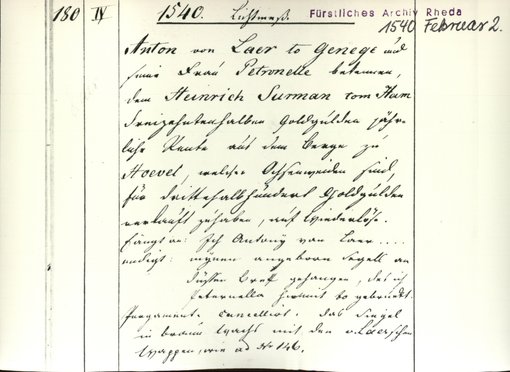 180 IV 1540. Lichtmeß. Fürstliches Archiv Rheda
1540 Februar 2.
Anton von Laer to Genege und
seine Frau Petronelle bekennen,
dem Heinrich Surman vom Ham
dreizehntenhalben Goldgulden jähr-
liche Rente aus dem Berge zu
Hoevel, welches Ochsenweiden sind,
für drittehalbhundert Goldgulden
verkauft zu haben, auf Wiederlöse
fängt an: Ich Antony van Laer ....
endigt: mynen angeborn Segell an
düssen breff gehangen, des ich
Peternella hirmit to gebruckt.
Pergament. cancellirt. das Siegel
in braun Wachs mit den v. Laerschen
Wappen, wie ad No 146.